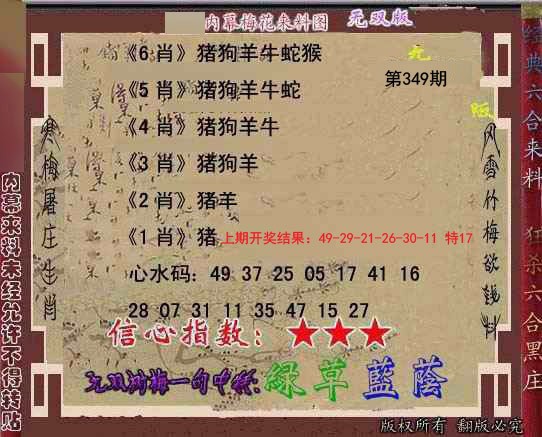 内幕梅花来料图 无双版
《6 肖》猪狗羊牛蛇猴
无
版
第349期
《5 肖》猪狗羊牛蛇
《4 肖》猪狗羊牛
《3 肖》猪狗羊
《2 肖》猪羊
《1 肖》猪 上期开奖结果: 49-29-21-26-30-11 特17
心水码: 49 37 25 05 17 41 16
28 07 31 11 35 47 15 27
信心指数: ★★★
无双测梅一句中特:綠草藍蔭
寒梅屠庄生肖
风雪竹梅欲钱料
内幕来料未经允许不得转贴
经典六合来料
狂杀六合黑庄
版权所有 翻版必究